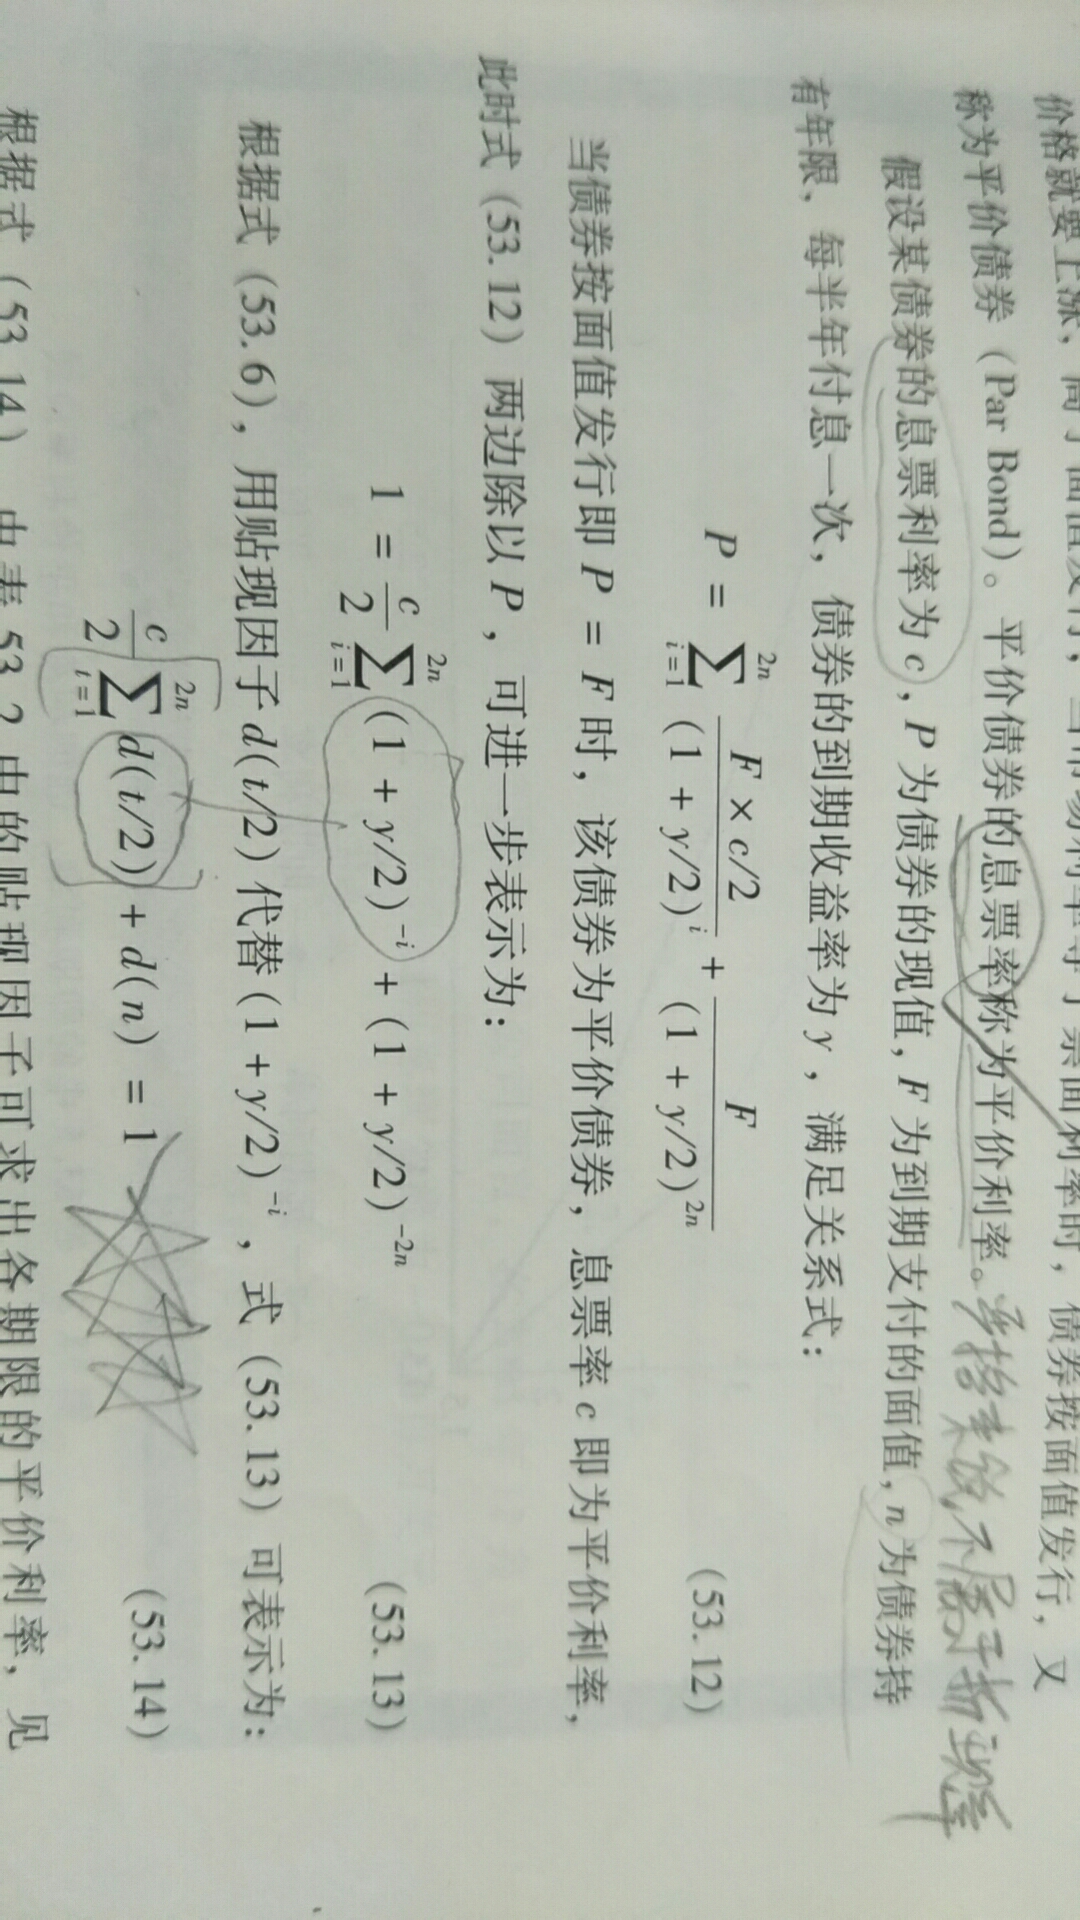 价格就要上涨、高于面值发行，当市场利率等于票面利率时，债券按面值发行，又
称为平价债券（Par Bond）。平价债券的息票率称为平价利率。
假设某债券的息票利率为 c，P 为债券的现值，F 为到期支付的面值，n 为债券持
有年限、每半年付息一次，债券的到期收益率为 y，满足关系式：
P = \sum_{i=1}^{2n} \frac{F × c/2}{(1 + y/2)^i} + \frac{F}{(1 + y/2)^{2n}} (53.12)
当债券按面值发行即 P = F 时，该债券为平价债券，息票率 c 即为平价利率，
此时式（53.12）两边除以 P，可进一步表示为：
1 = \frac{c}{2} \sum_{i=1}^{2n} (1 + y/2)^{-i} + (1 + y/2)^{-2n} (53.13)
根据式（53.6），用贴现因子 d(t/2) 代替 (1 + y/2)^{-i}，式（53.13）可表示为：
\frac{c}{2} \sum_{i=1}^{2n} d(t/2) + d(n) = 1 (53.14)
根据式（53.14），由表 53.2 中的贴现因子可求出各期限的平价利率，见